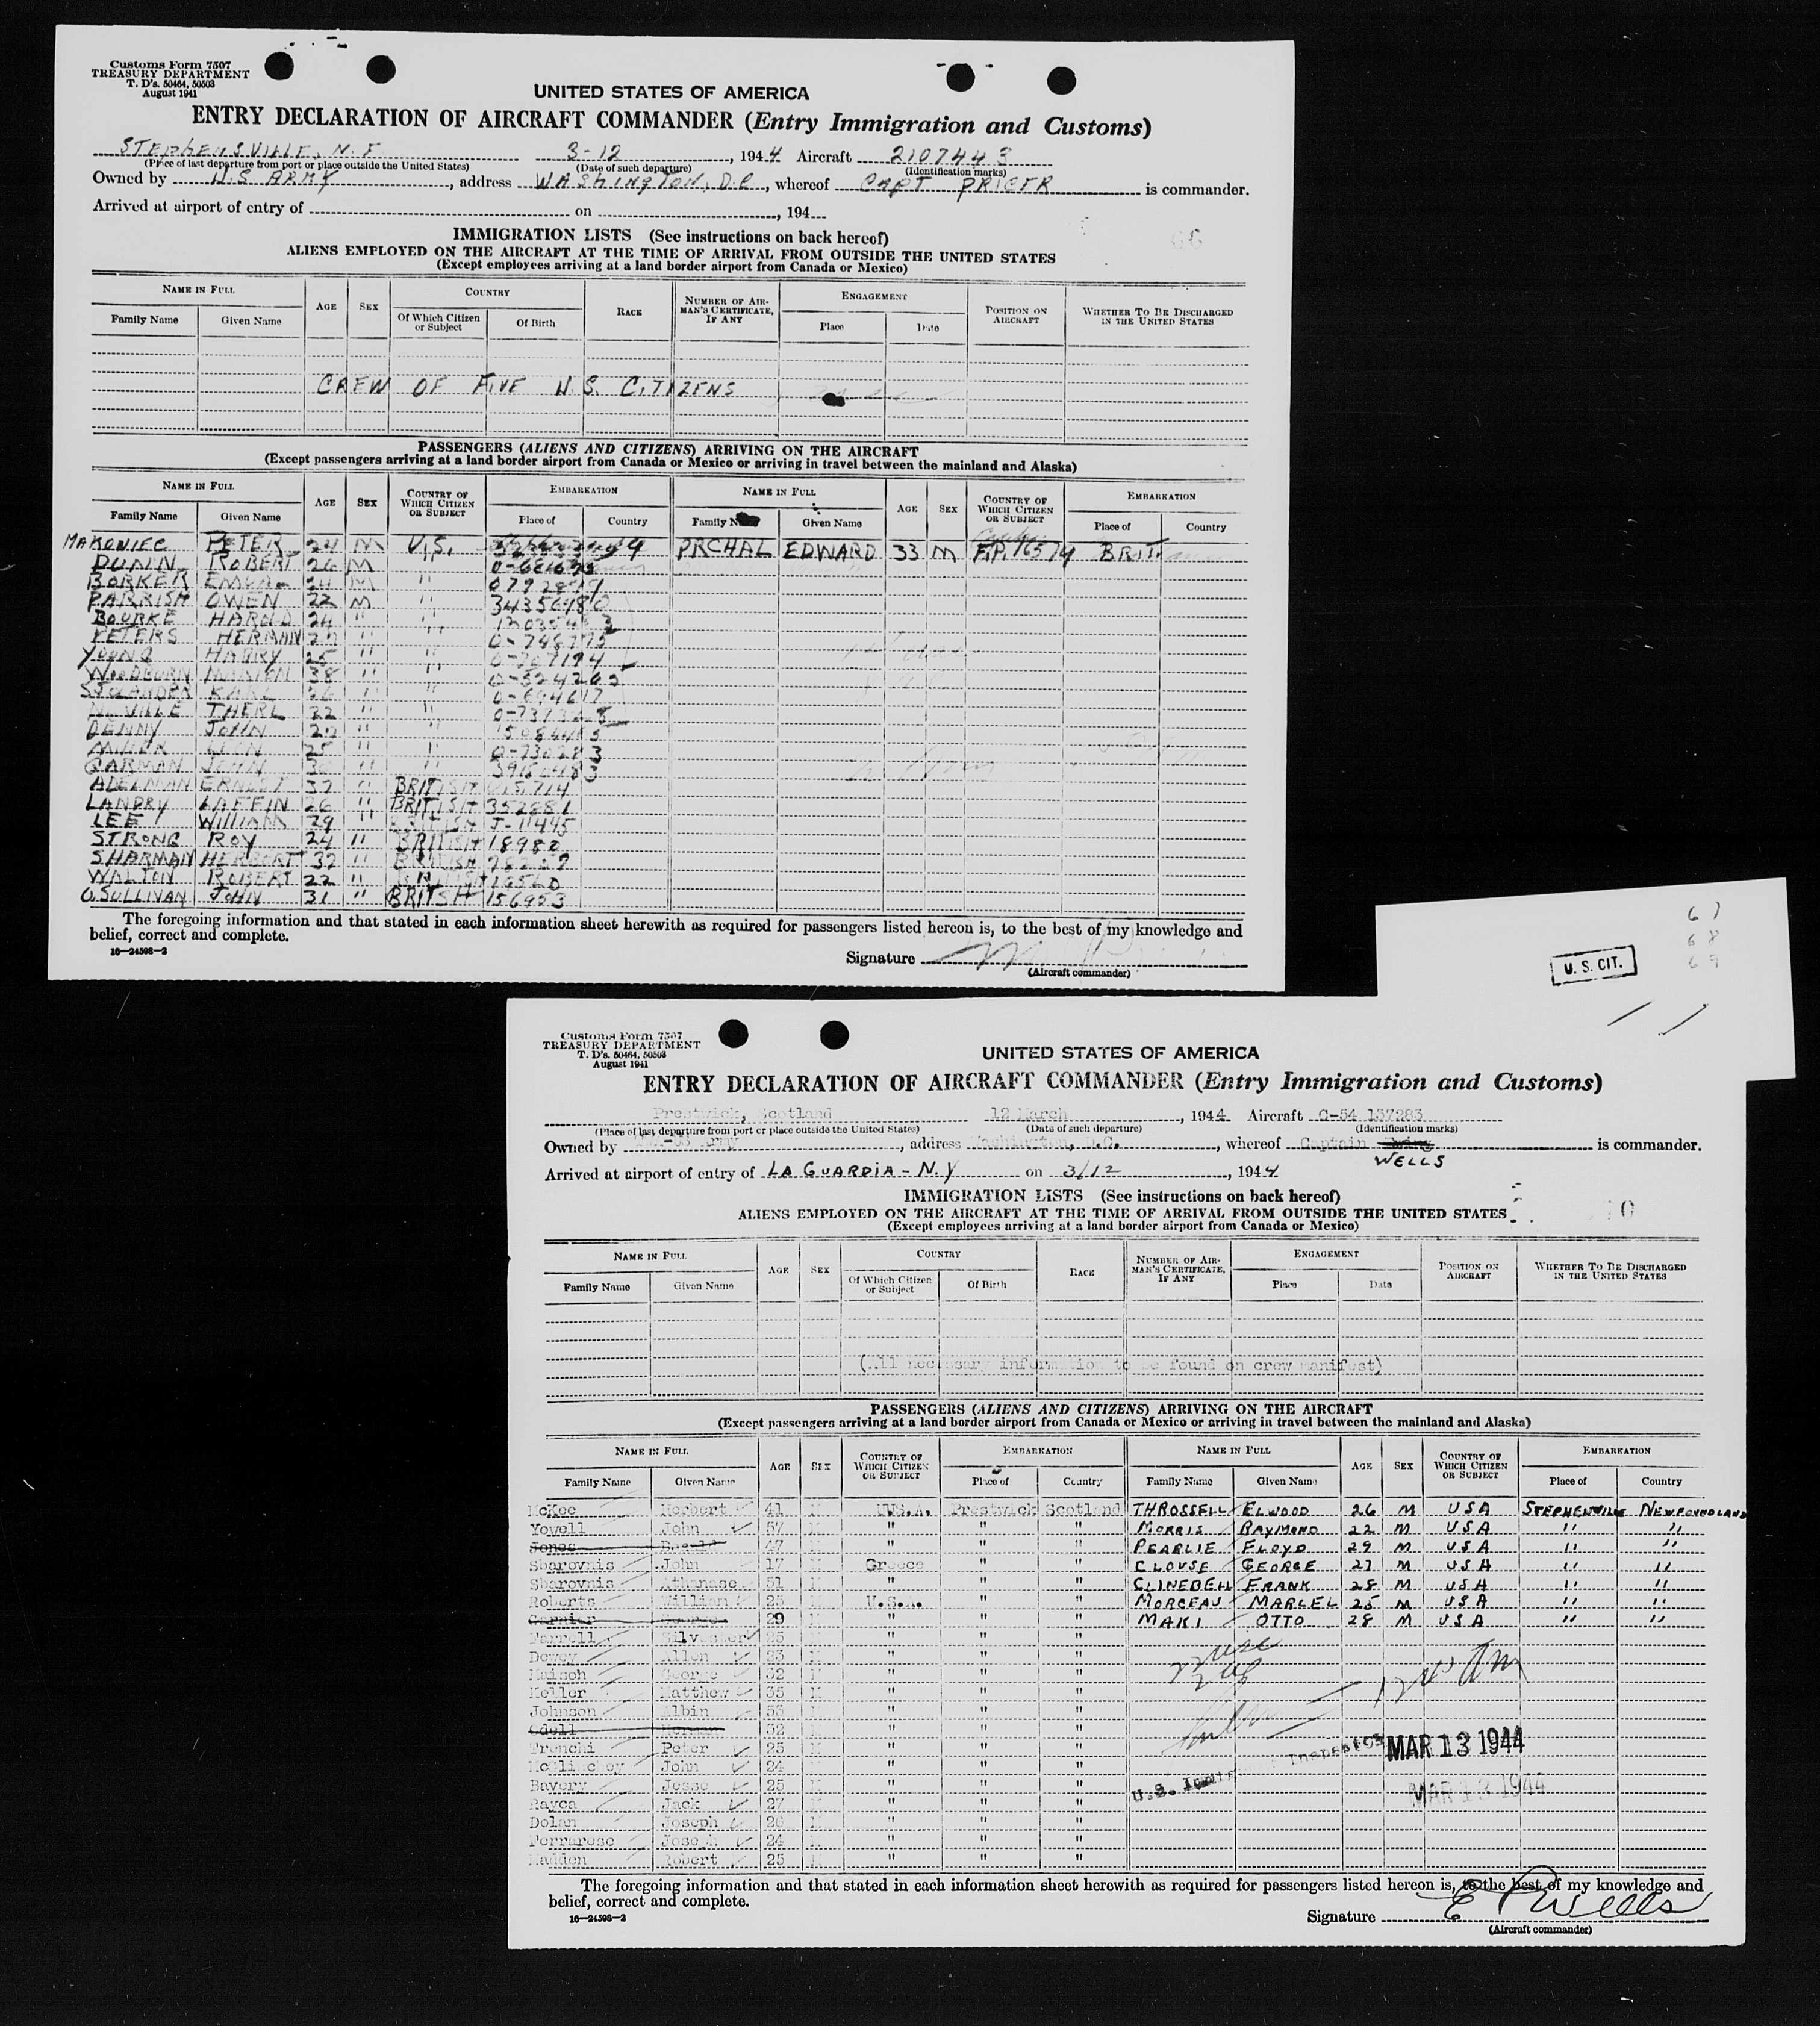 Customs Form 7507
TREASURY DEPARTMENT
T. D's. 50464, 50503
August 1941
UNITED STATES OF AMERICA
ENTRY DECLARATION OF AIRCRAFT COMMANDER (Entry Immigration and Customs)
STEPhENSVILLE, N.F. 3-12, 1944 Aircraft 2107443
(Place of last departure from port or place outside the United States) (Date of such departure) (Identification marks)
Owned by U.S ARMY, address WAShINgTON, D.C., whereof CAPT PRIGER is commander.
Arrived at airport of entry of on , 194
IMMIGRATION LISTS (See instructions on back hereof) 66
ALIENS EMPLOYED ON THE AIRCRAFT AT THE TIME OF ARRIVAL FROM OUTSIDE THE UNITED STATES
(Except employees arriving at a land border airport from Canada or Mexico)
NAME IN FULL AGE SEX COUNTRY RACE NUMBER OF AIRMAN'S CERTIFICATE, IF ANY ENGAGEMENT POSITION ON AIRCRAFT WHETHER TO BE DISCHARGED IN THE UNITED STATES
Family Name Given Name Of Which Citizen or Subject Of Birth Place Date
CREW OF FIVE U.S. CITIZENS
PASSENGERS (ALIENS AND CITIZENS) ARRIVING ON THE AIRCRAFT
(Except passengers arriving at a land border airport from Canada or Mexico or arriving in travel between the mainland and Alaska)
NAME IN FULL AGE SEX COUNTRY OF WHICH CITIZEN OR SUBJECT EMBARKATION NAME IN FULL AGE SEX COUNTRY OF WHICH CITIZEN OR SUBJECT EMBARKATION
Family Name Given Name Place of Country Family Name Given Name Place of Country
MAKONIEC PETER 24 M U.S. PRCHAL EDWARD 33 M F.P. 16574 BRIT.
DUNN ROBERT 26 M "
BORKER 24 M " 0792899
PARRISH OWEN 22 M " 34356980
BOURKE HAROLD 24 " "
PETERS HERMAN 27 " " 0-748775
YOUNG HARRY 25 " " 0-707194
WOODBURN MARION 38 " " 0-524262
SJOLANDER KARL 26 " " 0-694617
NEVILLE THERL 22 " "
DENNY JOHN 22 " " 15084485
MILLER 25 " " 0-730283
GARMAN JOHN 30 " "
ADELMAN ERNEST 37 " BRITISH
LANDRY LAFFIN 26 " BRITISH 352881
LEE WILLIAM 29 " BRITISH J-11495
STRONG ROY 24 " BRITISH 18980
SHARMAN HERBERT 32 " BRITISH
WALTON ROBERT 22 "
O'SULLIVAN JOHN 31 " BRITISH 156953
The foregoing information and that stated in each information sheet herewith as required for passengers listed hereon is, to the best of my knowledge and
belief, correct and complete.
16—24598-2
Signature
(Aircraft commander)
67
68
69
U. S. CIT.
Customs Form 7507
TREASURY DEPARTMENT
T. D's. 50464, 50503
August 1941
UNITED STATES OF AMERICA
ENTRY DECLARATION OF AIRCRAFT COMMANDER (Entry Immigration and Customs)
Prestwick, Scotland 12 March, 1944 Aircraft C-54 137283
(Place of last departure from port or place outside the United States) (Date of such departure) (Identification marks)
Owned by Army, address Washington, D.C., whereof Captain is commander.
WELLS
Arrived at airport of entry of LA GUARDIA - N.Y on 3/12, 1944
IMMIGRATION LISTS (See instructions on back hereof)
ALIENS EMPLOYED ON THE AIRCRAFT AT THE TIME OF ARRIVAL FROM OUTSIDE THE UNITED STATES
(Except employees arriving at a land border airport from Canada or Mexico)
NAME IN FULL AGE SEX COUNTRY RACE NUMBER OF AIRMAN'S CERTIFICATE, IF ANY ENGAGEMENT POSITION ON AIRCRAFT WHETHER TO BE DISCHARGED IN THE UNITED STATES
Family Name Given Name Of Which Citizen or Subject Of Birth Place Date
(All necessary information to be found on crew manifest)
PASSENGERS (ALIENS AND CITIZENS) ARRIVING ON THE AIRCRAFT
(Except passengers arriving at a land border airport from Canada or Mexico or arriving in travel between the mainland and Alaska)
NAME IN FULL AGE SEX COUNTRY OF WHICH CITIZEN OR SUBJECT EMBARKATION NAME IN FULL AGE SEX COUNTRY OF WHICH CITIZEN OR SUBJECT EMBARKATION
Family Name Given Name Place of Country Family Name Given Name Place of Country
McKee Herbert 41 M U.S.A. Prestwick Scotland THROSSELL ELWOOD 26 M USA STEPHENVILLE NEWFOUNDLAND
Yowell John 57 M " " " MORRIS RAYMOND 22 M USA " "
Jones 47 M " " " PEARLIE FLOYD 29 M USA " "
Sbarovnis John 17 M Greece " " CLOUSE GEORGE 21 M USA " "
Sbarovnis Athanase 51 M " " " CLINEBELL FRANK 28 M USA " "
Roberts William 25 M U.S.A. " " MORCEAU MARCEL 25 M USA " "
Garnier George 29 M " " " MAKI OTTO 28 M USA " "
Farrell Silvester 25 M " " "
Dewey Allen 23 M " " "
Maisch George 32 M " " "
Keller Matthew 35 M " " "
Johnson Albin 55 M " " "
Odell Herman 32 M " " "
Tronchi Peter 25 M " " "
McGlinchey John 24 M " " "
Bavery Jesse 25 M " " "
Rayca Jack 27 M " " "
Dolan Joseph 26 M " " "
Ferrarese Joseph 24 M " " "
Madden Robert 25 M " " "
U.S. Immigrant Inspector
MAR 13 1944
MAR 13 1944
The foregoing information and that stated in each information sheet herewith as required for passengers listed hereon is, to the best of my knowledge and
belief, correct and complete.
16—24598-2
Signature E P Wells
(Aircraft commander)